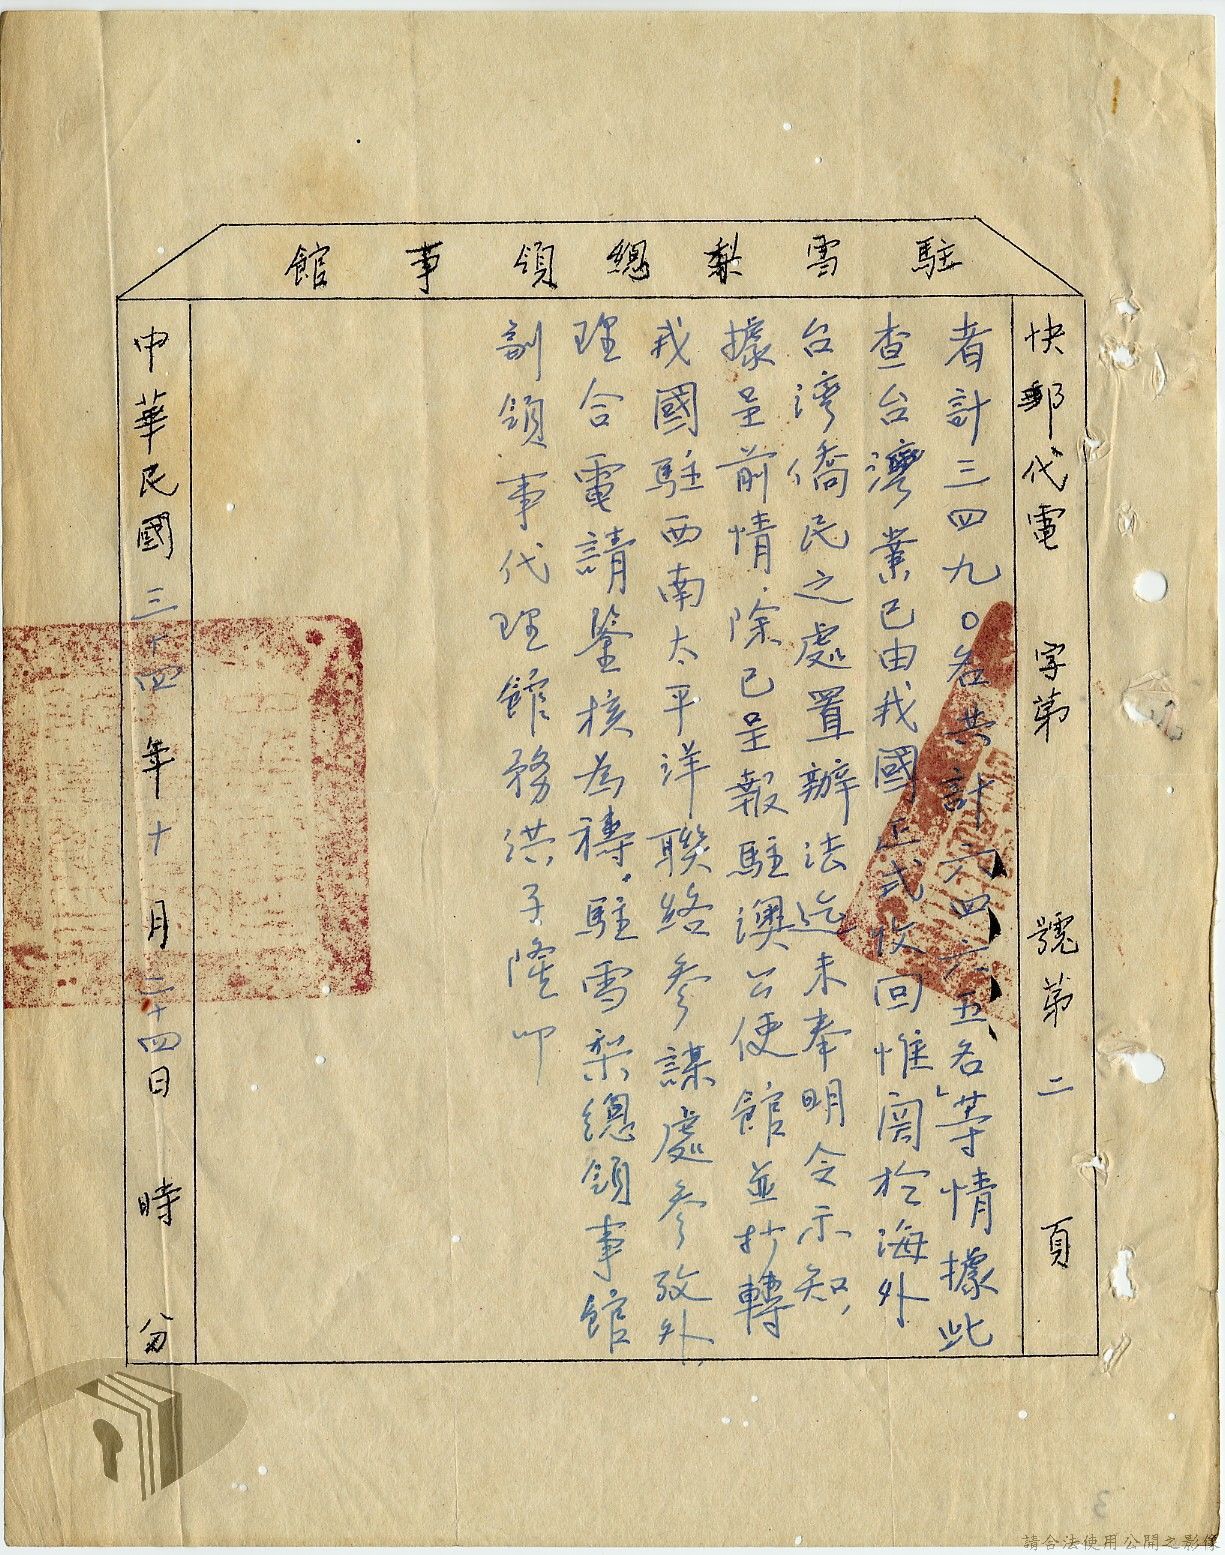 駐雪梨總領事館
快郵代電 字第 號第二頁
者計三四九〇名共計六四六五名」等情據此
查台灣業已由我國正式收回惟関於海外
台灣僑民之處置辦法迄未奉明令示知,
據呈前情.除已呈報駐澳公使館並抄轉
我國駐西南太平洋聯絡參謀處參攷外,
理合電請鑒核為禱.駐雪梨總領事館
副領事代理館務洪子隆叩
中華民國三十四年十月二十四日 時 分
3
請合法使用公開之影像